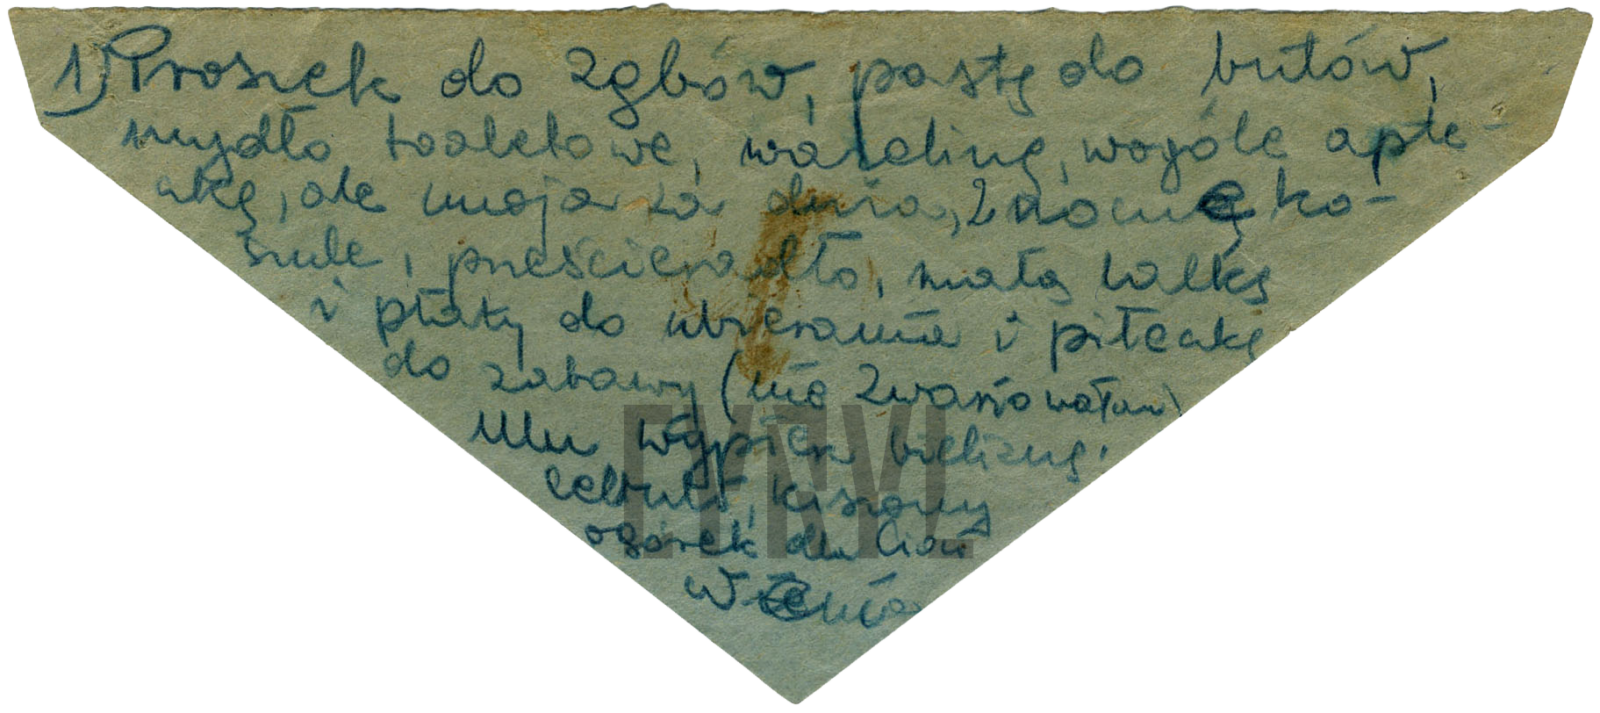 1) Proszek do zębów, pastę do butów,
mydło toaletowe, wazelinę, wogóle apte-
czkę, ale moja za duża, 2 nocne ko-
szule, prześcieradło, małą lalkę
i płatky do ubierania i piłeczkę
do zabawy (nie zwariowałam)
wypierz bieliznę.
kiszony
ogórek dla